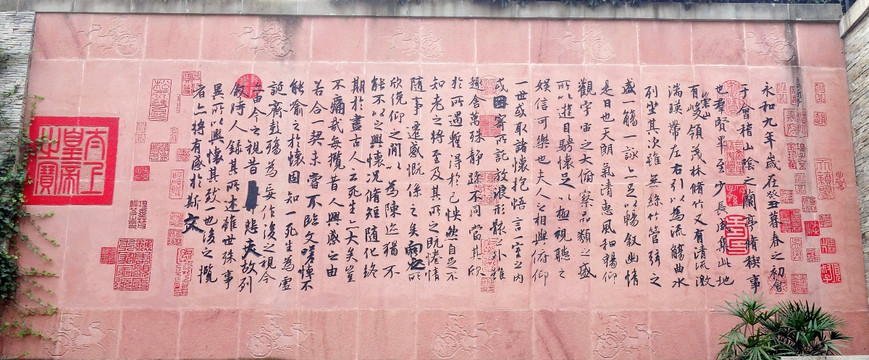 永和九年歲在癸丑暮春之初會
于會稽山陰之蘭亭脩稧事
也群賢畢至少長咸集此地
有崇山峻領茂林脩竹又有清流激
湍暎帶左右引以為流觴曲水
列坐其次雖無絲竹管弦之
盛一觴一詠亦足以暢敘幽情
是日也天朗氣清惠風和暢仰
觀宇宙之大俯察品類之盛
所以遊目騁懷足以極視聽之
娛信可樂也夫人之相與俯仰
一世或取諸懷抱悟言一室之內
或因寄所託放浪形骸之外雖
趣舍萬殊靜躁不同當其欣
於所遇蹔得於己怏然自足不
知老之將至及其所之既惓情
隨事遷感慨係之矣向之所
欣俛仰之間以為陳迹猶不
能不以之興懷況脩短隨化終
期於盡古人云死生亦大矣豈
不痛哉每攬昔人興感之由
若合一契未嘗不臨文嗟悼不
能喻之於懷固知一死生為虛
誕齊彭殤為妄作後之視今
亦由今之視昔悲夫故列
敘時人錄其所述雖世殊事
異所以興懷其致一也後之攬
者亦將有感於斯文
太上皇帝之寶